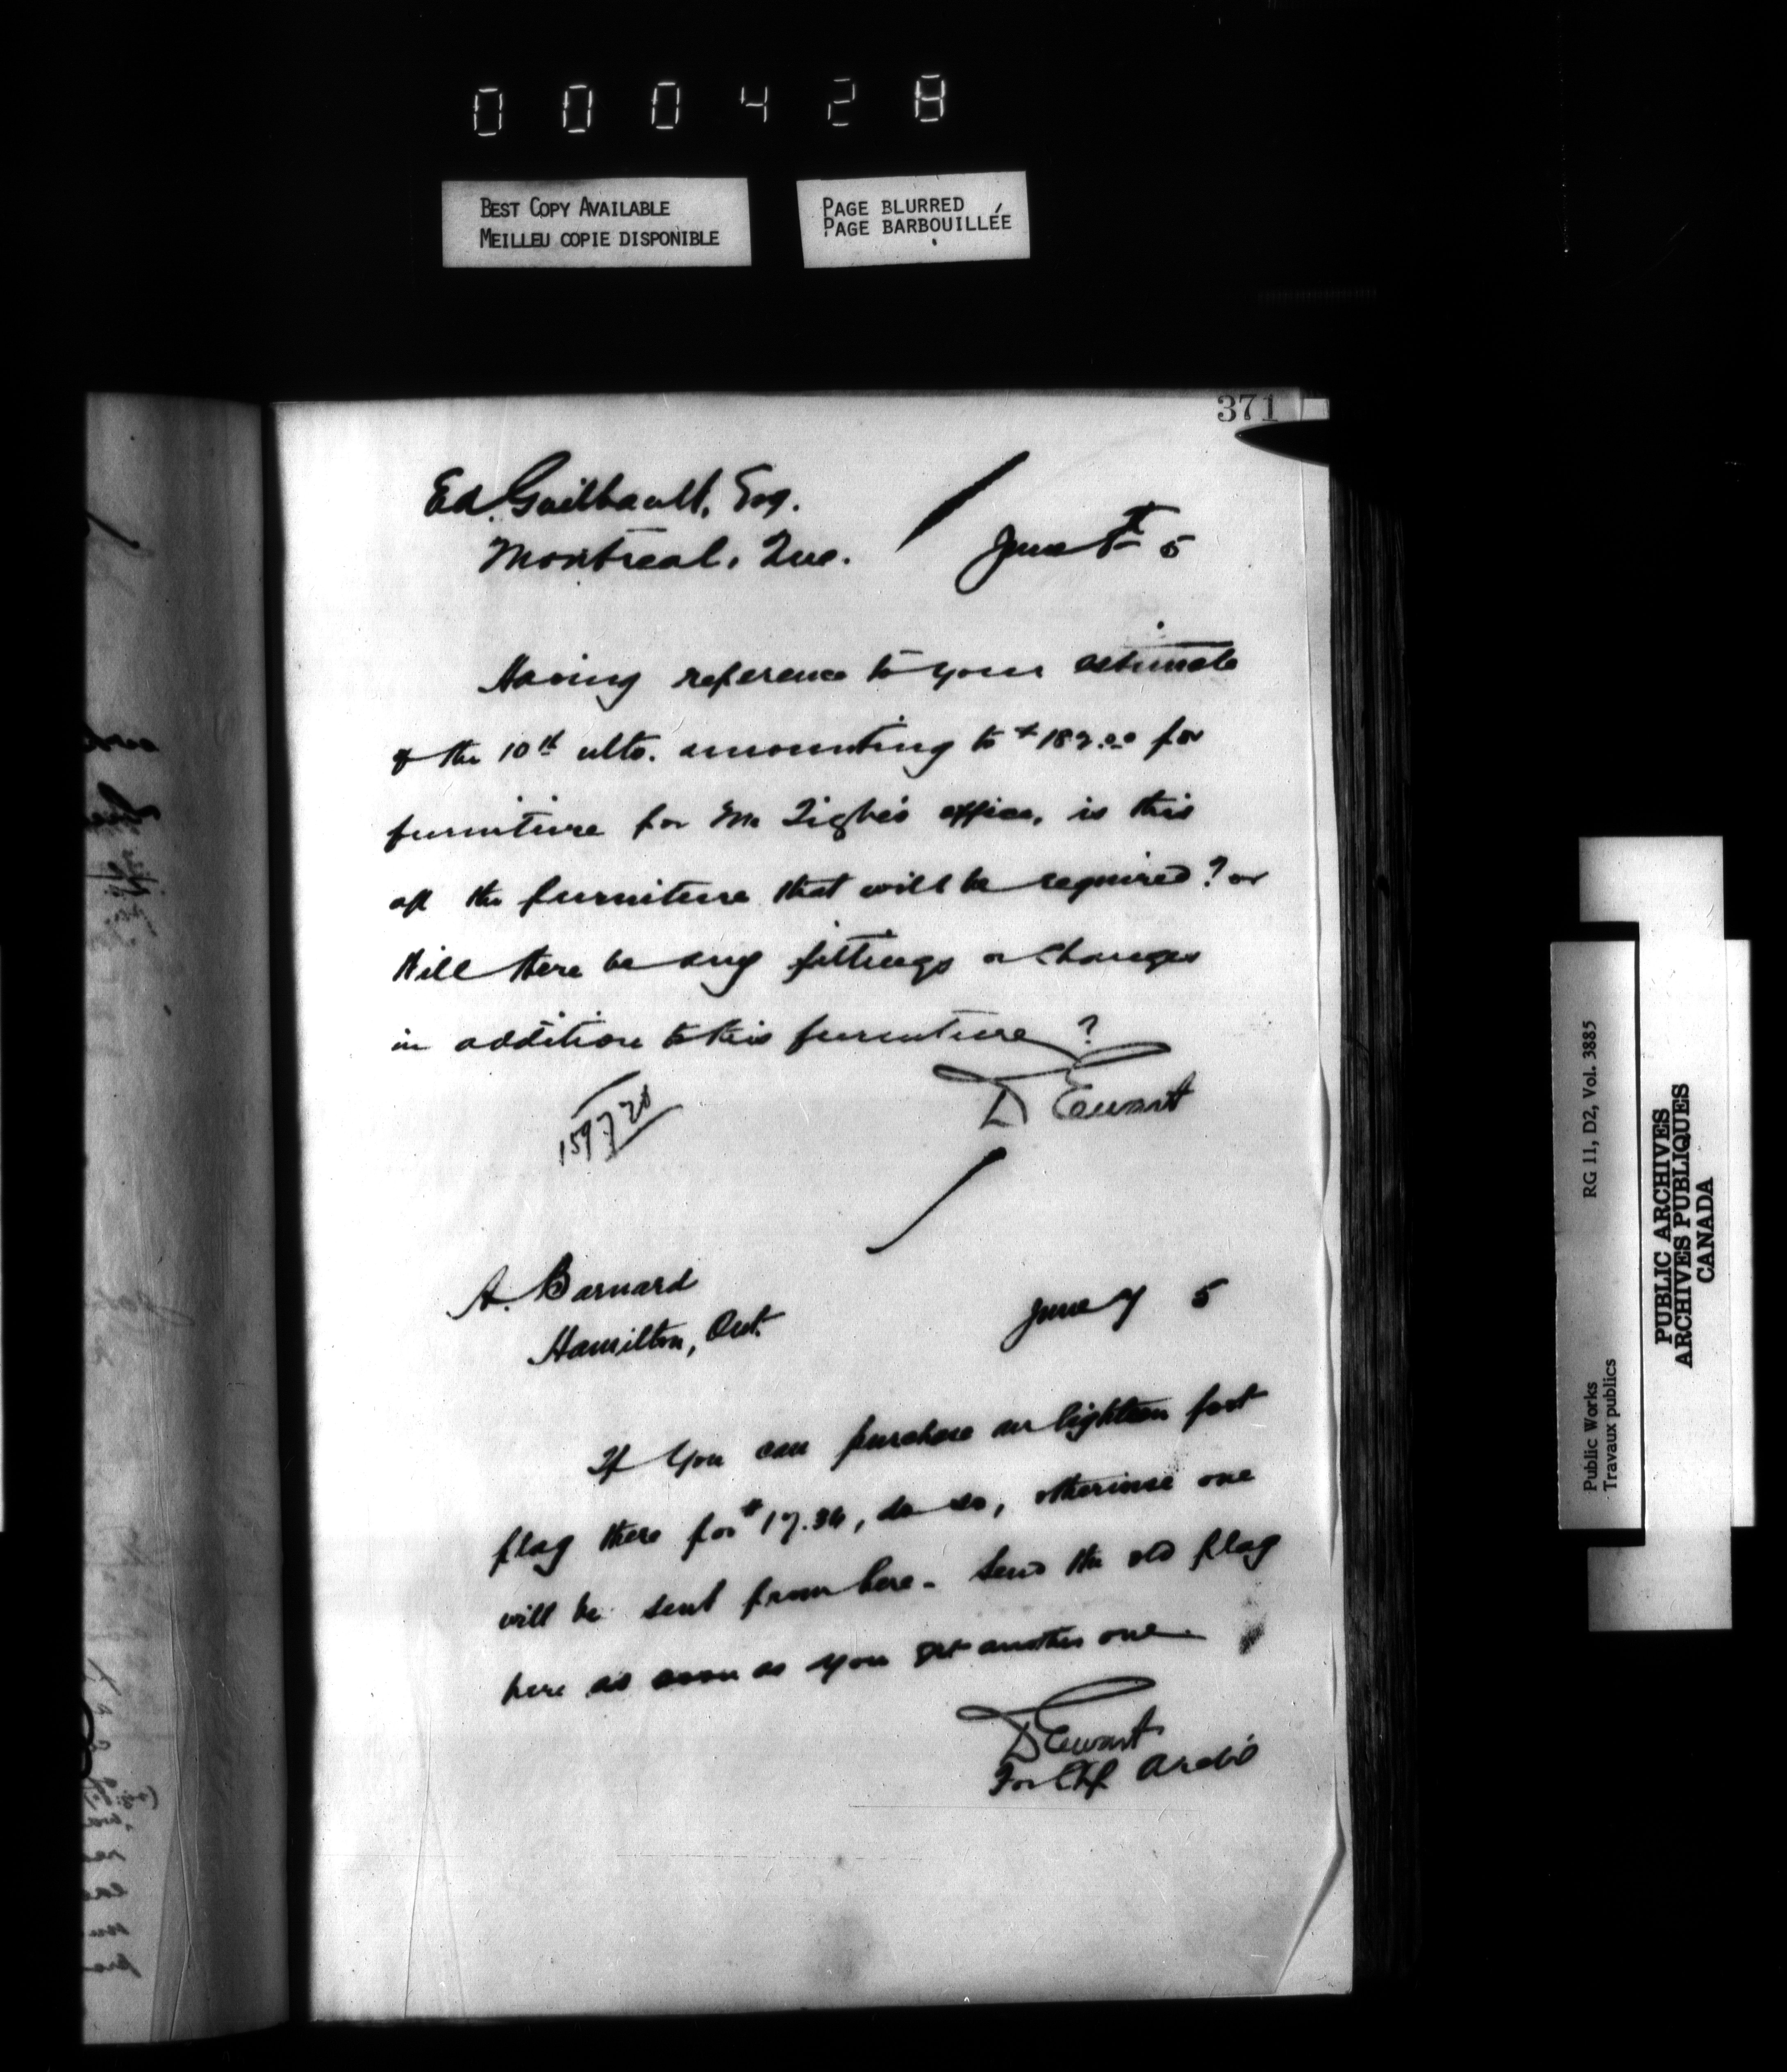 000428
BEST COPY AVAILABLE
MEILLEU COPIE DISPONIBLE
PAGE BLURRED
PAGE BARBOUILLÉE
371
Ed. Guilbault, Esq.
Montreal, Que.
June 5
Having reference to your estimate
of the 10th ulto. amounting to $182.00 for
furniture for Mr Tighe's office, is this
all the furniture that will be required? or
Will there be any fittings or changes
in addition to this furniture?
D Ewart
A. Barnard
Hamilton, Ont.
June 7 5
If you can purchase an eighteen foot
flag there for $17.36, do so, otherwise one
will be sent from here. Send the old flag
here as soon as you get another one.
D Ewart
For Chf Archt
Public Works
Travaux publics
RG 11, D2, Vol. 3885
PUBLIC ARCHIVES
ARCHIVES PUBLIQUES
CANADA